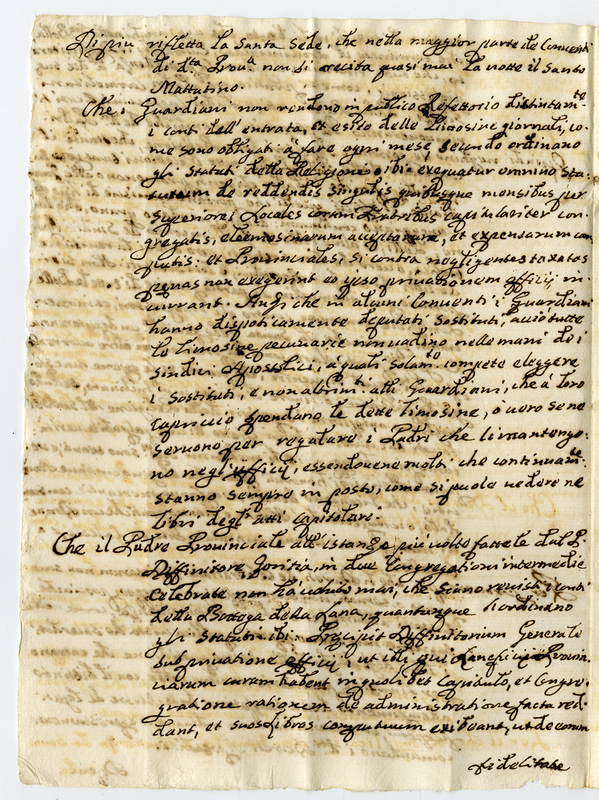 Di piu rifletta la Santa Sede, che nella maggior parte de Conventi
di d.ta Prov.a non si recita quasi mai la notte il Santo
Mattutino.
Che i Guardiani non rendono in publico Refettorio distintam.te
i conti dell'entrata, et esito delle limosine giornali, co-
me sono obligati à fare ogni mese secundo ordinano
gli Statuti della Religione ibi: exequatur omnino Sta-
tutum de reddendis singulis quibusque mensibus per
Superiores Locales coram Fratribus capitulariter con-
gregatis, eleemosinarum acceptarum, et expensarum com-
putis: et Provinciales, si contra negligentes taxatas
penas non exegerint eo ipso privationem officij in-
currant. Anzi che in alcuni Conventi i Guardiani
hanno dispoticamente deputati Sostituti, acciò tutte
le limosine pecuniarie non vadino nelle mani de i
Sindici Apostolici, à quali solam.te compete eleggere
i Sostituti, e non altrim.ti alli Guardiani, che à loro
capriccio spendano le dette limosine, ò vero se ne
servono per regalare i Padri che li mantengo-
no negl'ufficij, essendovene molti che continuam.te
stanno sempre in posto, come si puole vedere ne
libri degl'atti capitolari.
Che il Padre Provinciale all'istanze più volte fattele dal P.
Diffinitore in due Congregationi intermedie
celebrate non hà voluto mai, che siano revisti i conti
della Bottega della Lana, quantunque l'ordinano
gli Statuti ibi: Precipit Diffinitorium Generale
sub privatione officij, ut illi qui Lanificij Provin-
ciarum curam habent in quolibet Capitulo, et Congre-
gratione rationem de administratione facta red-
dant, et suos Libros computuum exibeant, ut de eorum
fidelitate